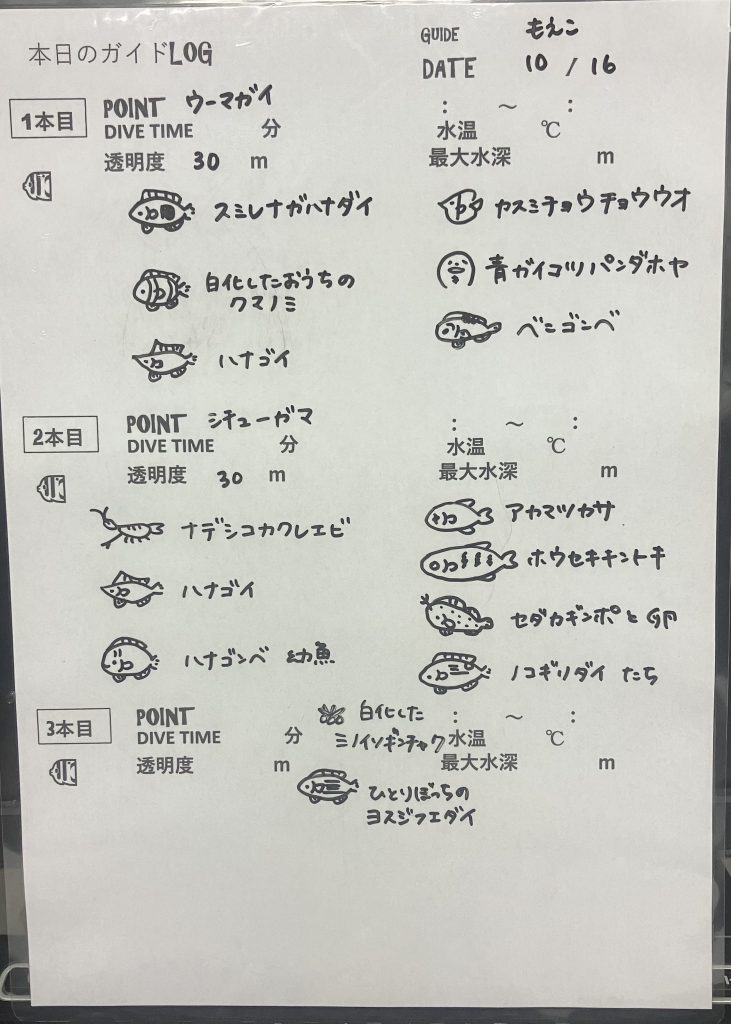 本日のガイドLOG
GUIDE もえこ
DATE 10 / 16
1本目
POINT ウーマガイ
: ～ :
DIVE TIME 分
水温 ℃
透明度 30 m
最大水深 m
スミレナガハナダイ
カスミチョウチョウウオ
白化したおうちの
クマノミ
青ガイコツパンダホヤ
ハナゴイ
ベニゴンベ
2本目
POINT シチューガマ
: ～ :
DIVE TIME 分
水温 ℃
透明度 30 m
最大水深 m
ナデシコカクレエビ
アカマツカサ
ハナゴイ
ホウセキキントキ
セダカギンポと卵
ハナゴンベ 幼魚
ノコギリダイ たち
3本目
POINT
: ～ :
DIVE TIME 分
水温 ℃
透明度 m
最大水深 m
白化した
ミノイソギンチャク
ひとりぼっちの
ヨスジフエダイ